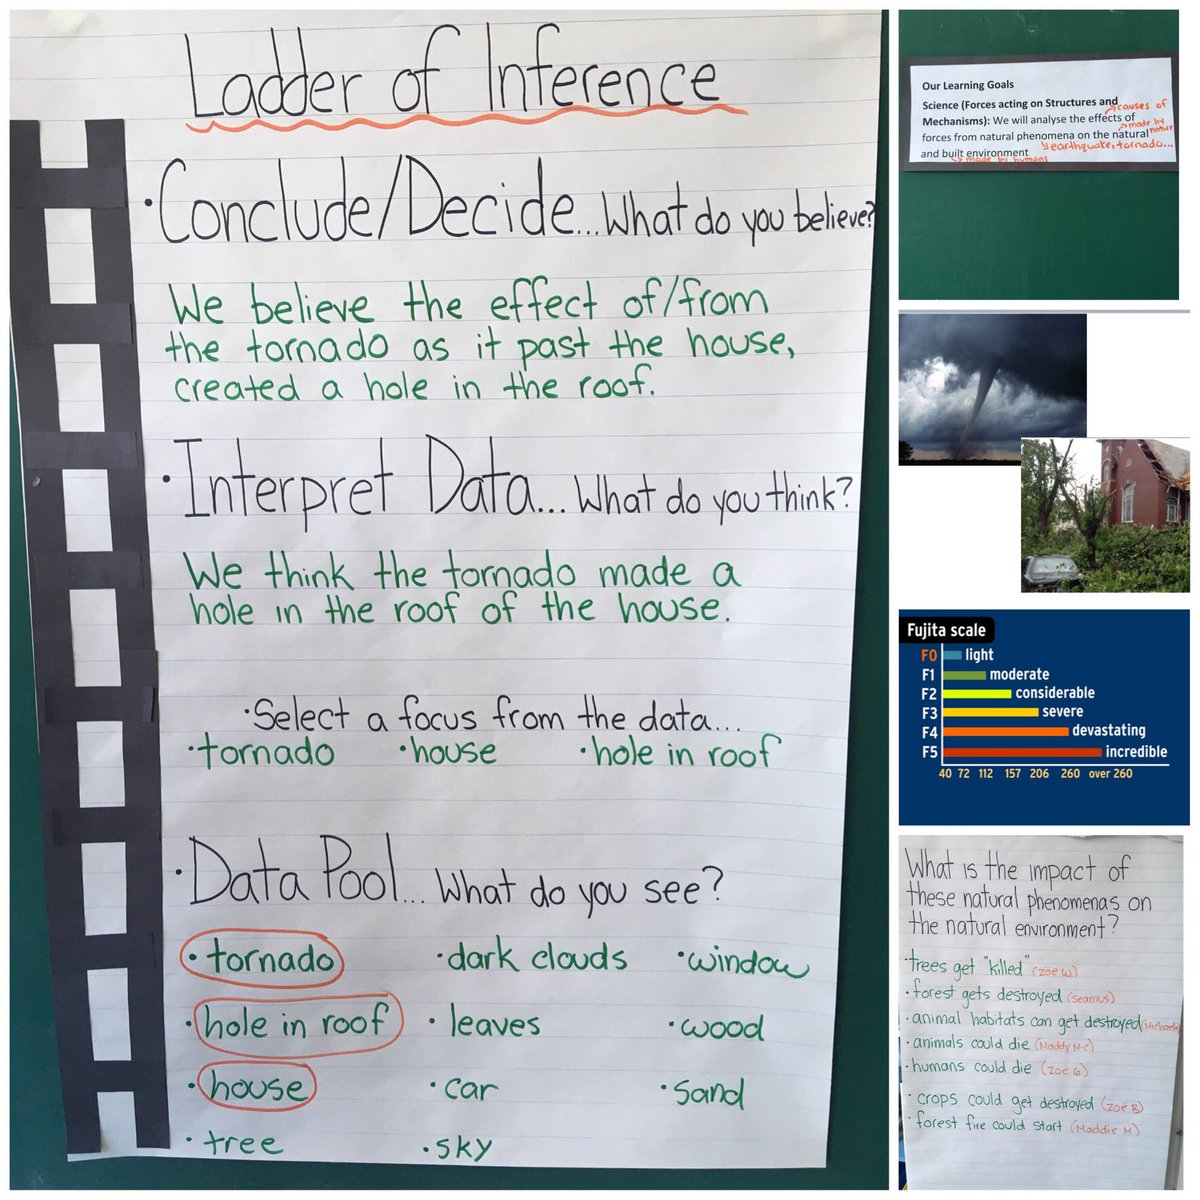 Ladder of Inference
·Conclude/Decide...What do you believe?
We believe the effect of/from
the tornado as it past the house,
created a hole in the roof.
·Interpret Data... What do you think?
We think the tornado made a
hole in the roof of the house.
·Select a focus from the data...
·tornado ·house ·hole in roof
·Data Pool... What do you see?
·tornado ·dark clouds ·window
·hole in roof ·leaves ·wood
·house ·car ·sand
·tree ·sky
Our Learning Goals
Science (Forces acting on Structures and
causes of
Mechanisms): We will analyse the effects of
made by nature
forces from natural phenomena on the natural
earthquake, tornado...
and built environment
made by humans
Fujita scale
F0 light
F1 moderate
F2 considerable
F3 severe
F4 devastating
F5 incredible
40 72 112 157 206 260 over 260
What is the impact of
these natural phenomenas on
the natural environment?
·trees get "killed" (zöe W.)
·forest gets destroyed (seamus)
·animal habitats can get destroyed (Michael)
·animals could die (Maddy M-C)
·humans could die (Zoë G)
·crops could get destroyed (Zoë B)
·forest fire could start (Maddie M)